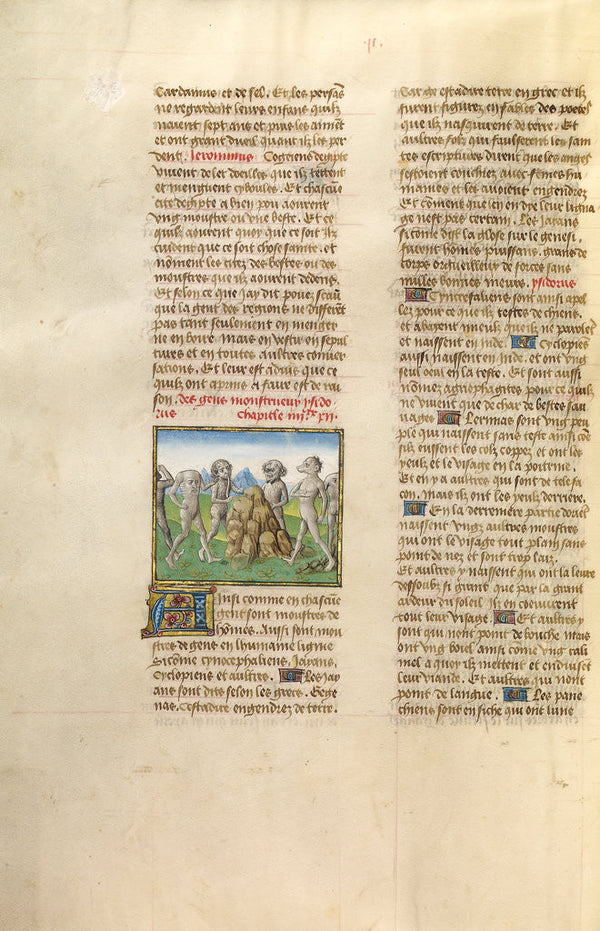 .ii.
Cardamus et de sel. Et les persās
ne regardent leurs enfans quilz
naient sept ans et puis les aimēt
et ont grant dueil quant ilz les per
dent. Jeronimus Egiens degipte
viuent de let doeilles que ilz tettent
et menguent cyboules. Et chascūe
cite degipte a bien pou aourent
vng monstre ou vne beste. Et ce
quilz aourent quoy que ce soit ilz
cuident que ce soit chose sainte. et
nōment les citez des bestes ou des
monstres que ilz aourent dedens.
Et selon ce que iay dit pouez scauoir
que la gent des regions ne different
pas tant seulement en menger
ne en boire mais en vestir en sepul
tures et en toutes aultres conuer
sations. Et leur est aduis que ce
quilz ont apuins a faire est de rai
son. des gens monstrueux ysido
rus Chapitle iiii.xx xii.
Ainsi comme en chascūe
gent sont monstres de
hōmes. Aussi sont mon
stres de gens en lhumaine ligne
Sicōme cynocephaliens, Jayans,
Cyclopiens et aultres. Les Jay
ans sont dits selon les grecs. Gege
nas. Cestadire engendrez de terre.
Car ge estadire terre en grec et ilz
furent figurez en fables des poetes
que ilz nasquirent de terre. Et
aultres folz qui faulserent les sain
tes escriptures dirent que les anges
sestoient couchiez auec fēmes hu
maines et les auoient engendrez
Et cōment que len en dye leur ligna
ge nest pas certain. Les Jayans
sicōme dist la glose sur le genesi.
furent hōmes puissans. grans de
corps orgueilleux de forces sans
nulles bonnes meurs. ysidorus
Cynocefaliens sont ainsi apel
lez pour ce que ilz testes de chiens.
et abayent mieulx que ilz ne parolet
et naissent en inde. Cyclopiēs
aussi naissent en inde. et ont vng
seul oeul en la teste. Et sont aussi
nōmez agriophagites pour ce quilz
ne viuent que de char de bestes sau
uages Lermas sont vng peu
ple qui naissent sans teste ainsi cōe
silz eussent les colz coppez et ont les
yeulx et le visage en la poitrine.
Et en y a aultres qui sont de tele fa
con. mais ilz ont les yeulx derriere.
En la derreniere partie dorient
naissent vngz aultres monstres
qui ont le visage tout plain sans
point de nez et sont trop laiz.
Et aultres y naissent qui ont la leure
dessoubz si grant que par la grant
ardeur du soleil ilz en coeuurent
tout leur visage. Et aultres y
sont qui nont point de bouche mais
ont vng boiel ainsi cōme vng cali
mel a quoy ilz mettent et enduiset
leur viande. Et aultres qui nont
point de langue. Les pane
chiens sont en siche qui ont lune